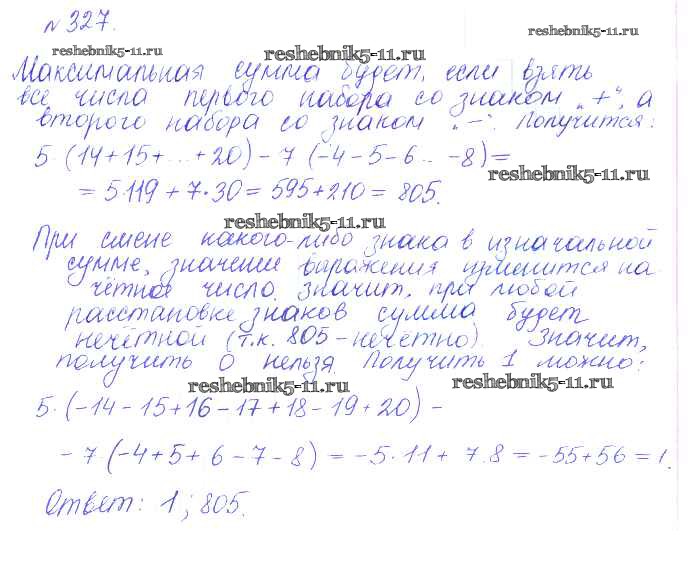 №327.
reshebnik5-11.ru reshebnik5-11.ru reshebnik5-11.ru
Максимальная сумма будет, если взять
все числа первого набора со знаком „+“, а
второго набора со знаком „-“. Получится:
5·(14+15+...+20)-7(-4-5-6...-8)=
reshebnik5-11.ru
=5·119+7·30=595+210=805.
reshebnik5-11.ru
При смене какого-либо знака в изначальной
сумме, значение выражения изменится на
чётное число. Значит, при любой
расстановке знаков сумма будет
нечётной (т.к. 805-нечётно). Значит,
получить 0 нельзя. Получить 1 можно:
reshebnik5-11.ru reshebnik5-11.ru
5·(-14-15+16-17+18-19+20)-
-7·(-4+5+6-7-8)=-5·11+7·8=-55+56=1.
Ответ: 1; 805.